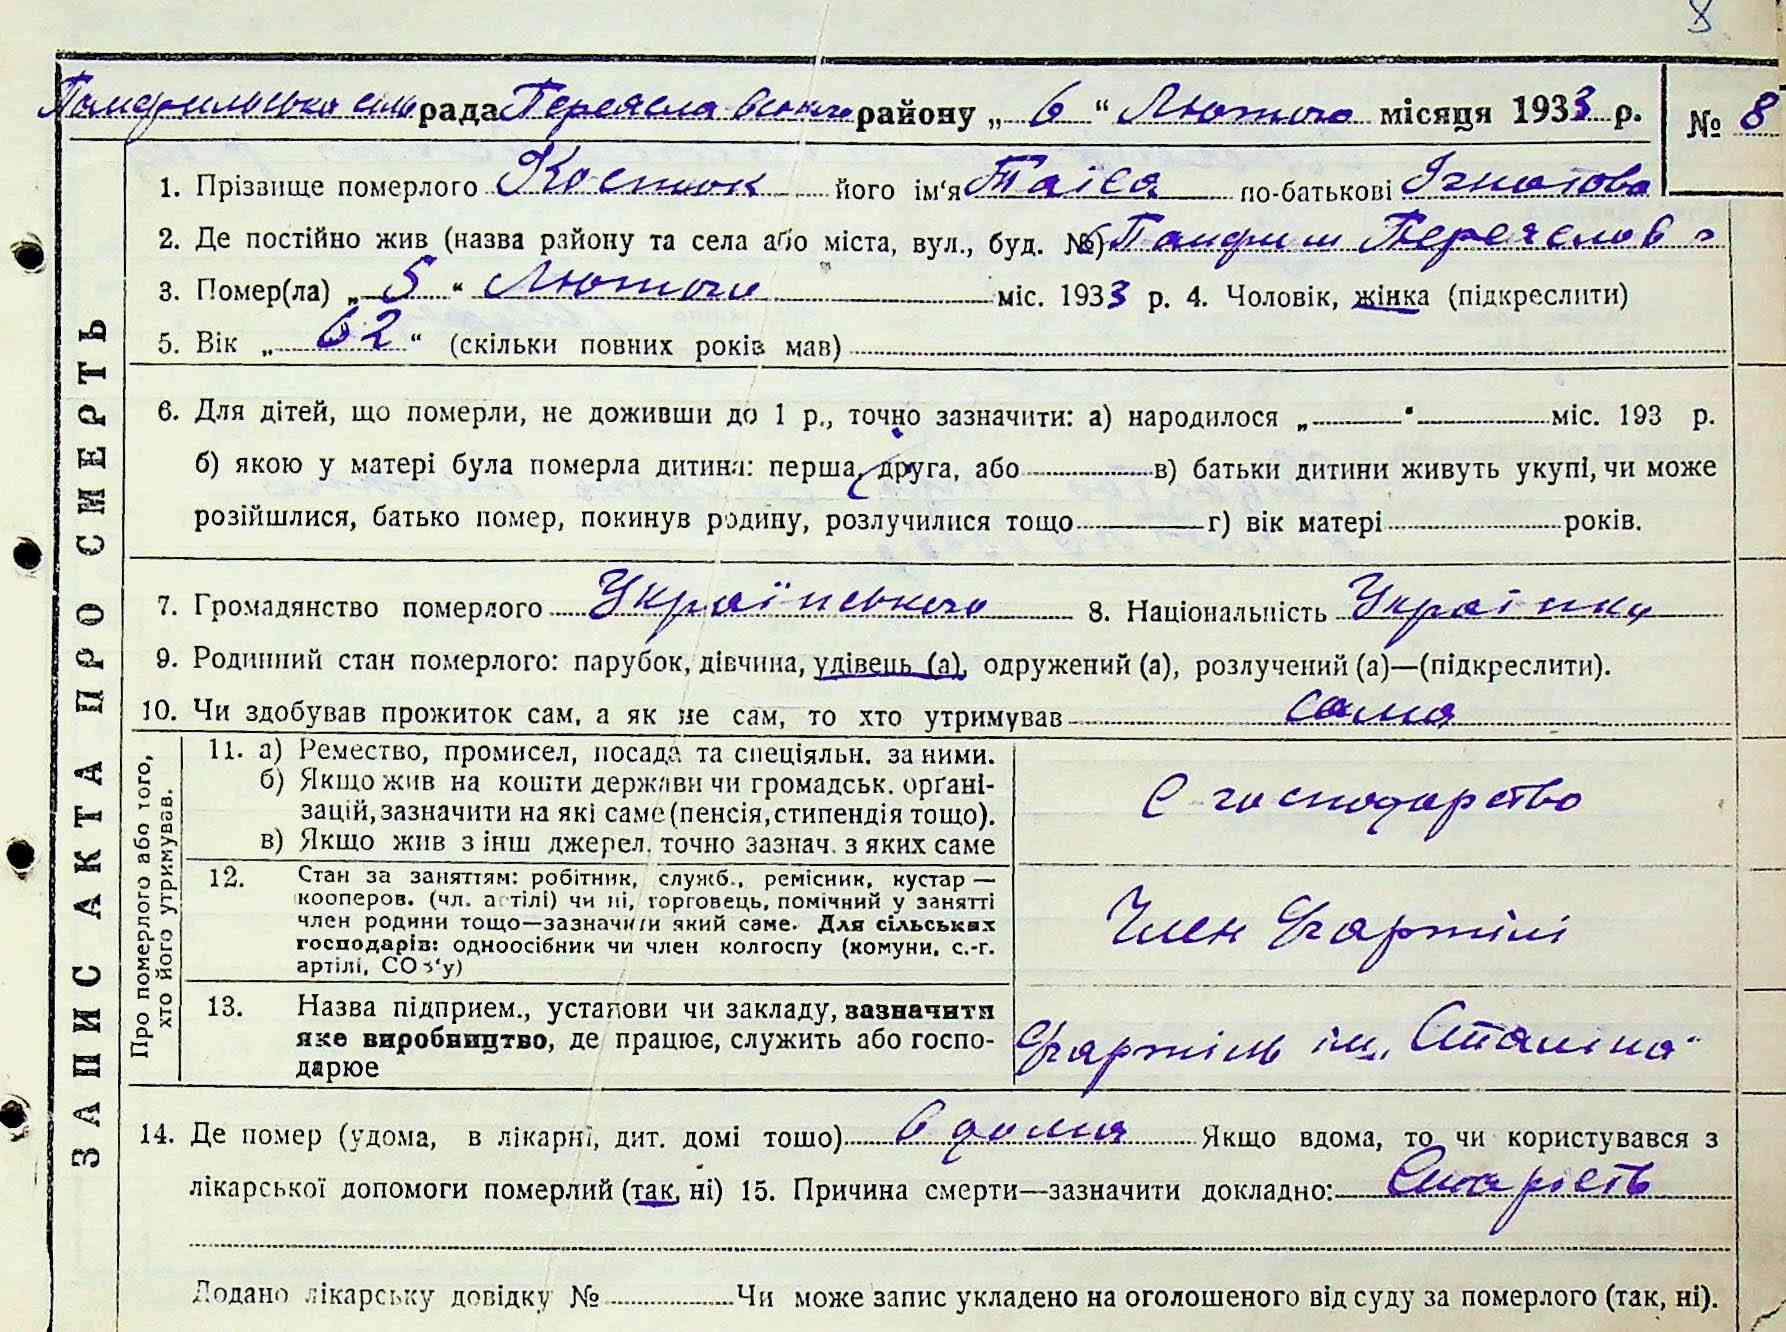 8
Памфильська сіль рада Переяславського району „ 6 “ Лютого місяця 1933 р. № 8
ЗАПИС АКТА ПРО СМЕРТЬ
1. Прізвище померлого Костюк його ім‘я Таіса по-батькові Ігнатова
2. Де постійно жив (назва району та села або міста, вул., буд. №) Памфили Переяслов
3. Помер(ла) „ 5 “ Лютого міс. 1933 р. 4. Чоловік, жінка (підкреслити)
5. Вік „ 62 “ (скільки повних років мав)
6. Для дітей, що померли, не доживши до 1 р., точно зазначити: а) народилося „ “ міс. 193 р.
б) якою у матері була померла дитина: перша, друга, або в) батьки дитини живуть укупі, чи може
розійшлися, батько помер, покинув родину, розлучилися тощо г) вік матері років.
7. Громадянство померлого Українського 8. Національність Українка
9. Родинний стан померлого: парубок, дівчина, удівець (а), одружений (а), розлучений (а)—(підкреслити).
10. Чи здобував прожиток сам, а як не сам, то хто утримував сама
Про померлого або того,
хто його утримував.
11. а) Ремество, промисел, посада та спеціяльн. за ними.
б) Якщо жив на кошти держави чи громадськ. орґані-
зацій, зазначити на які саме (пенсія, стипендія тощо).
в) Якщо жив з інш джерел. точно зазнач. з яких саме
С господарство
12. Стан за заняттям: робітник, служб., ремісник, кустар —
кооперов. (чл. артілі) чи ні, торговець, помічний у занятті
член родини тощо—зазначити який саме. Для сільських
господарів: одноосібник чи член колгоспу (комуни, с.-г.
артілі, СОЗ‘у)
Член артілі
13. Назва підприєм., установи чи закладу, зазначити
яке виробництво, де працює, служить або госпо-
дарює
артіль ім. Сталіна
14. Де помер (удома, в лікарні, дит. домі тощо) вдома Якщо вдома, то чи користувався з
лікарської допомоги померлий (так, ні) 15. Причина смерти—зазначити докладно: Старість
Додано лікарську довідку № Чи може запис укладено на оголошеного від суду за померлого (так, ні).